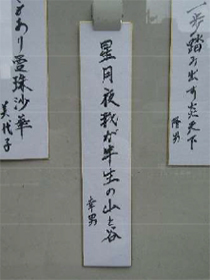 一歩踏み出す炎天下
隆男
星月夜我が半生の山と谷
幸男
とあり曼珠沙華
美代子